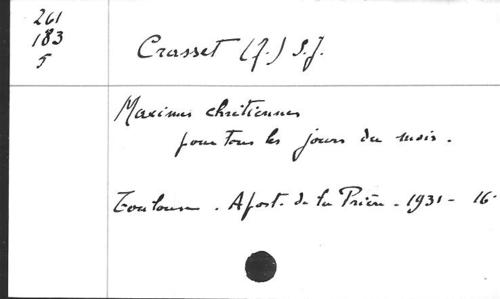 261
183
5
Crasset (J.) S.J.
Maximes chrétiennes
pour tous les jours du mois.
Toulouse. Apost. de la Prière. 1931 - 16-